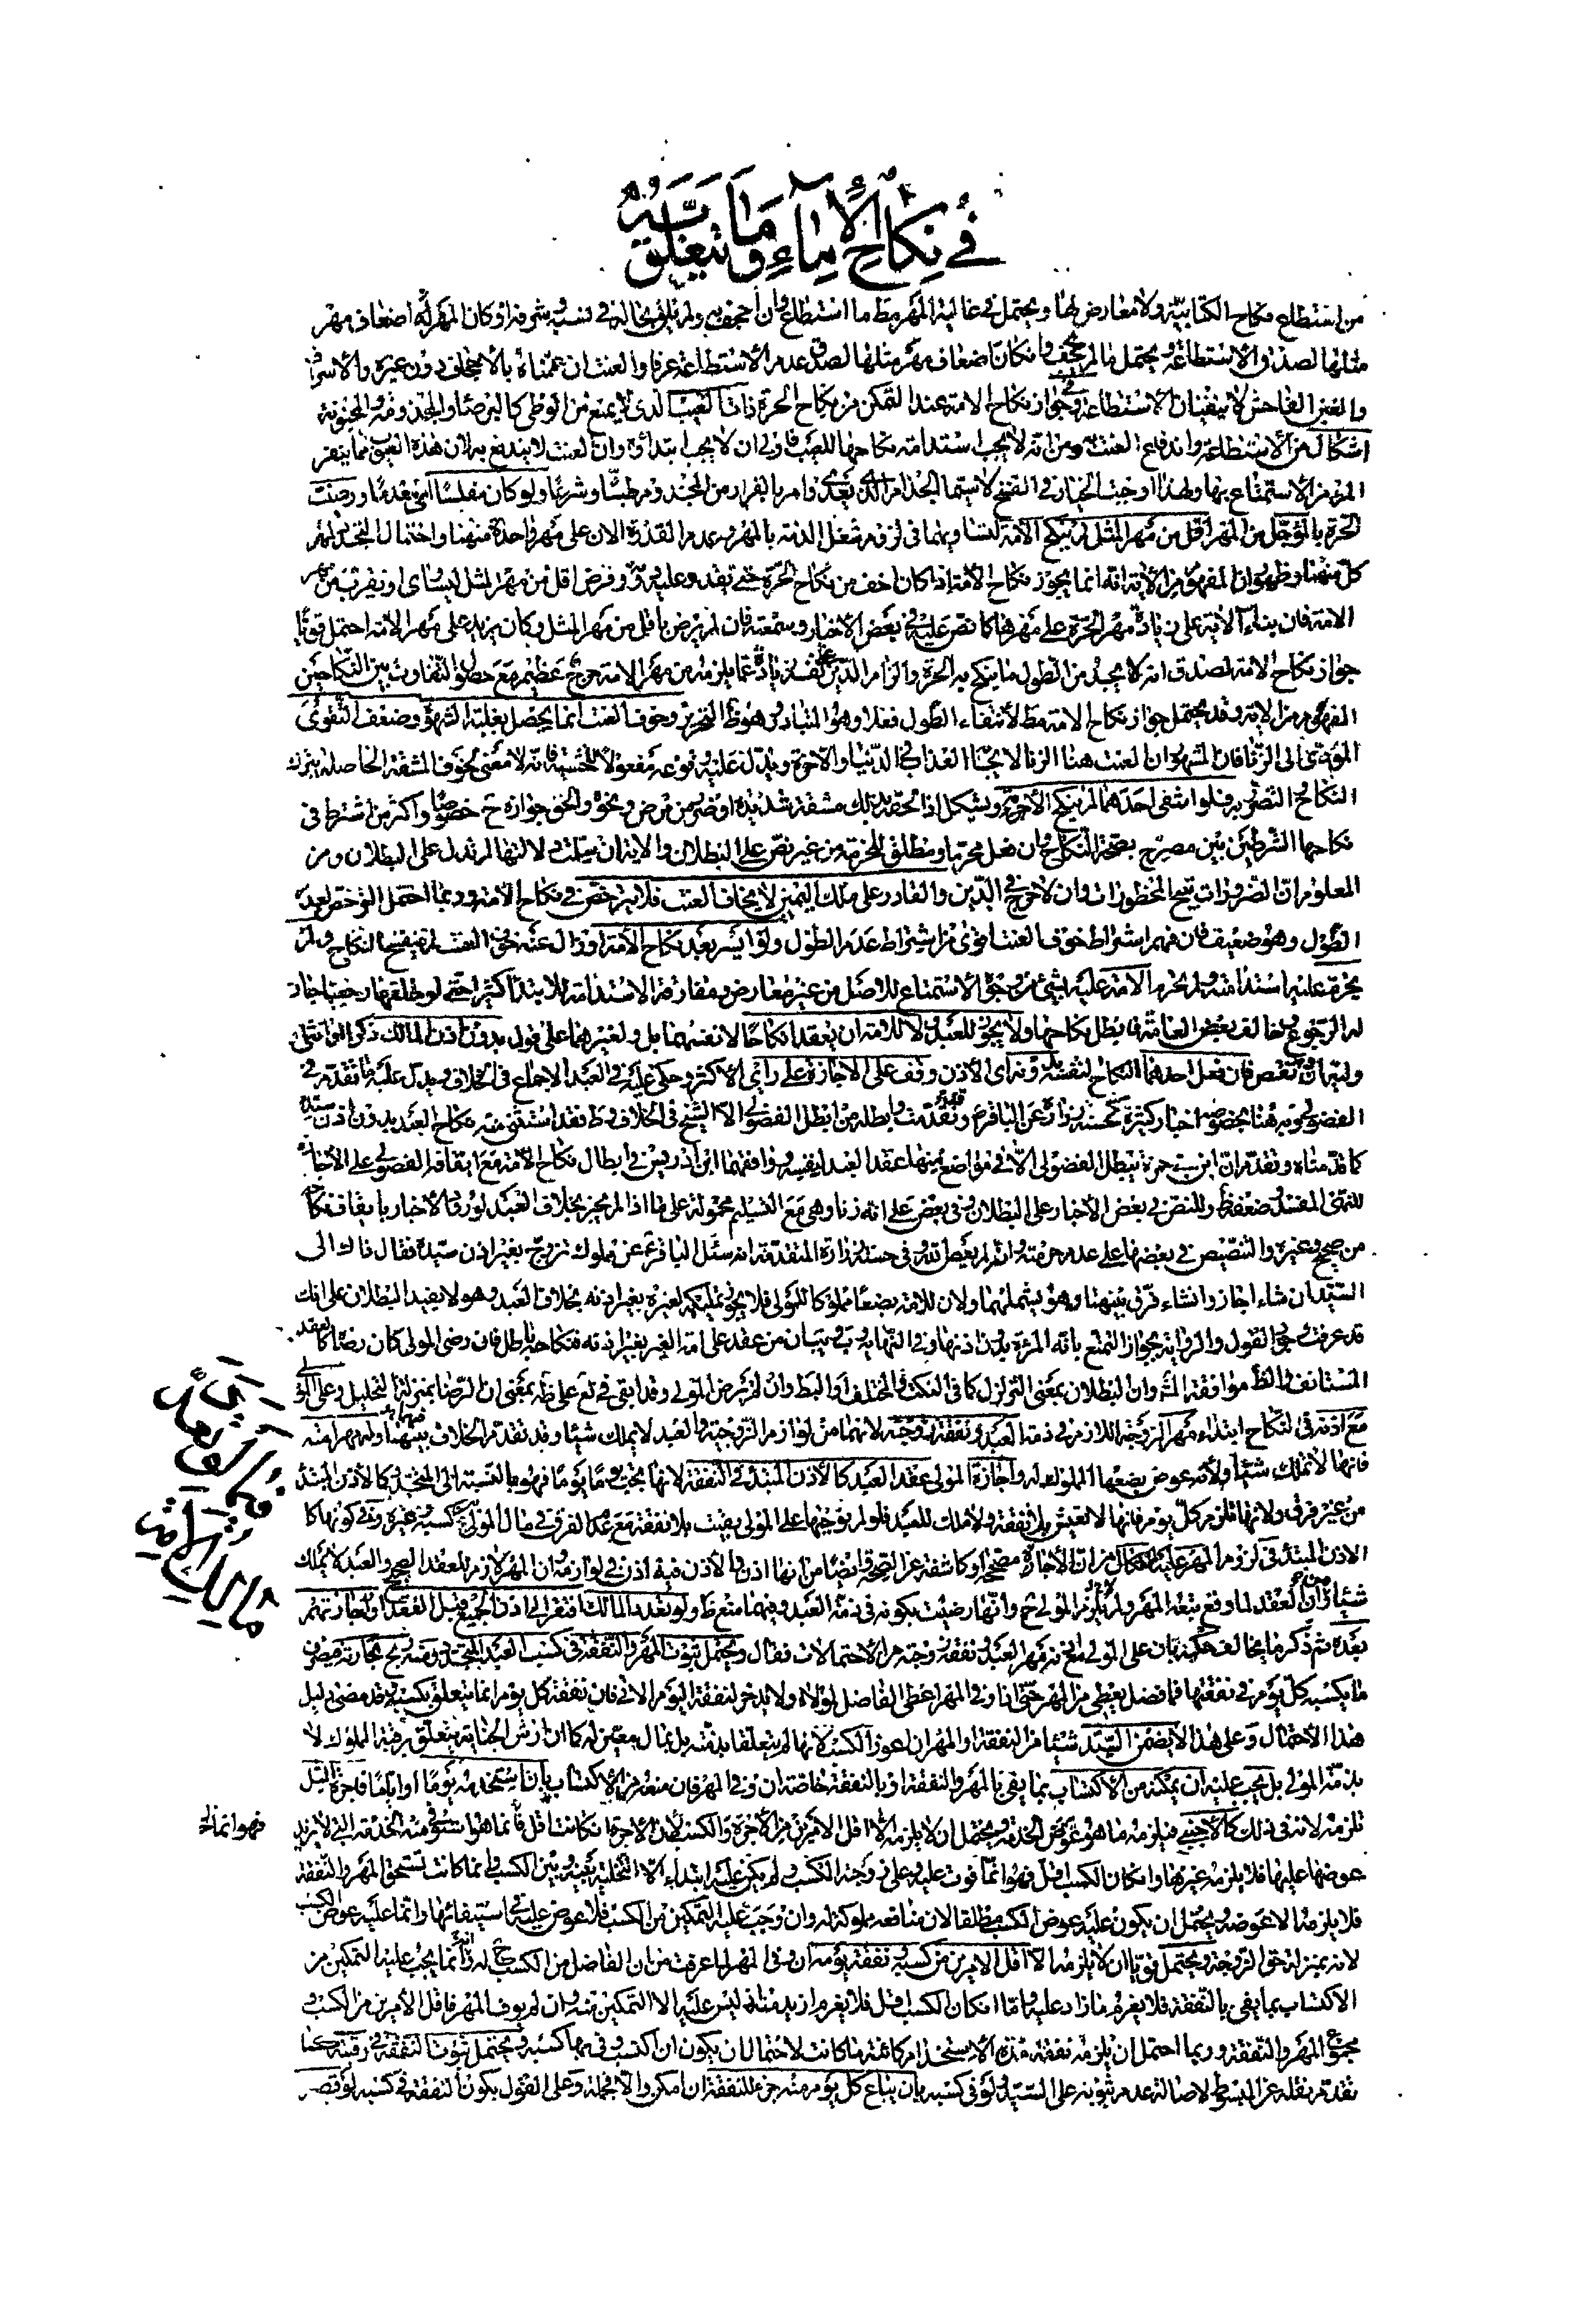 في نكاح الإماء وما يتعلق به
من استطاع نكاح الكتابية ولا معارض لها ويحتمل في غالية المهر مط ما استطاع وان اجحف به ولم تلق بحاله في نسب وشرف او كان المهر له اضعاف مهر
مثلها لصدق الاستطاعة ويحتمل ما لم يجحف وان كان اضعاف مهر مثلها لصدق عدم الاستطاعة عرفا والعنت ان عممناه بالاجحاف دون غيره والاسراف
والغبن الفاحش لا ينفيان الاستطاعة وفي جواز نكاح الامة عند التمكن من نكاح الحرة ذات العيب الذي لا يمنع من الوطي كالبرصاء والمجذومة والمجنونة
اشكال من الاستطاعة واندفاع العنت به ومن انه لا يجب استدامة نكاحها للعيب فاولى ان لا يجب ابتداؤه وان العنت لا يندفع به لان هذه العيوب مما ينفر
المرء من الاستمتاع بها ولهذا اوجبت الخيار في الفسخ لا سيما الجذام الذي يعدي وامر بالفرار من المجذوم طبا وشرعا ولو كان مفلسا اي معدما ورضيت
الحرة بالمؤجل من المهر او اقل من مهر المثل لم ينكح الامة لتساويهما في لزوم شغل الذمة بالمهر وعدم القدرة الان على مهر واحدة منهما واحتمال التجدد لمهر
كل منهما وظهور ان المفهوم من الاية انه انما يجوز نكاح الامة اذا كان اخف من نكاح الحرة حتى تقدر عليه دونه وفرض اقل من مهر المثل ليساوي او يقرب من مهر
الامة فان بناء الاية على زيادة مهر الحرة على مهرها كما نص عليه في بعض الاخبار وسمعته فان لم يرض باقل من مهر المثل وكان يزيد على مهر الامة احتمل قويا
جواز نكاح الامة لصدق انه لا يجد من الطول ما ينكح به الحرة والزام الدين على نفسه زيادة عما يلزمه من مهر الامة حرج عظيم مع حصول التفاوت بين النكاحين
المفهوم من الاية وقد يحتمل جواز نكاح الامة مط لانتفاء الطول فعلا وهو المتبادر وهو ظ التحرير وخوف العنت انما يحصل بغلبة الشهوة وضعف التقوى
المؤدي الى الزنا فان المشهور ان العنت هنا الزنا لايجابه العذاب في الدنيا والاخرة ويدل عليه وقوعه مفعولا للخشية فانه لا معنى لخوف المشقة الحاصلة بترك
النكاح والتصبر فلو انتفى احدهما لم ينكح الامة ويشكل اذا لحقه بذلك مشقة شديدة او ضرر من مرض ونحوه والحق جوازه ح خصوصا واكثر من اشترط في
نكاحها الشرطين بين مصرح بصحة النكاح وان فعل محرما ومطلق للحرمة من غير نص على البطلان والاية ان سلمت دلالتها لم تدل على البطلان ومن
المعلوم ان الضرورات تبيح المحظورات وان لا حرج في الدين والقادر على ملك اليمين لا يخاف العنت فلا يترخص في نكاح الامة وربما احتمل الترخص لعدم
الطول وهو ضعيف فان فهم اشتراط خوف العنت اقوى من اشتراط عدم الطول ولو ايسر بعد نكاح الامة او زال عنه خوف العنت لم ينفسخ النكاح ولم
يحرم عليه استدامته ولم يحرم الامة عليه بشيء من وجوه الاستمتاع للاصل من غير معارض ومفارقة الاستدامة للابتداء كثيرا حتى لو طلقها رجعيا جاز
له الرجوع وخالف بعض العامة فابطل نكاحها ولا يجوز للعبد ولا للامة ان يعقدا نكاحا لانفسهما بل ولغيرهما على قول بدون اذن المالك ذكرا او انثى
وليه ان نقص فان فعل احدهما النكاح لنفسه بدون اي الاذن وقف على الاجازة على راي الاكثر وحكي عليه في العبد الاجماع في الخلاف ويدل عليه ما تقدم في
الفضولي وبه هنا بخصوصه اخبار كثيرة كحسنة زرارة عن الباقر وقد تقدمت وابطله من ابطل الفضولي الا الشيخ في الخلاف وط فقد استثنى منه نكاح العبد بدون اذن سيده
كما قدمناه وتقدم ان ابن حمزة يبطل الفضولي الا في مواضع منها عقد العبد لنفسه ووافقهما ابن ادريس في ابطال نكاح الامة مع ايقافه الفضولي على الاجازة
للنهي المفسد وضعفه ظ وللنص في بعض الاخبار على البطلان وفي بعض على انه زنا وهي مع التسليم محمولة على ما اذا لم يجز بخلاف العبد لورود الاخبار بايقاف نكاحه
من صحيح وغيره والتنصيص في بعضها على عدم حرمته وانه لم يعص الله وفي حسنة زرارة المتقدمة انه سئل الباقر ع عن مملوك تزوج بغير اذن سيده فقال ذاك الى
السيد ان شاء اجاز وان شاء فرق بينهما وهو يشملهما ولان للامة بضعا مملوكا للمولى فلا يجوز تمليكه لغيره بغير اذنه بخلاف العبد وهو لا يفيد البطلان على انك
قد عرفت وجود القول والرواية بجواز التمتع بامة المرءة بدون اذنها وفي النهاية وب وتبيان من عقد على امة الغير بغير اذنه فنكاحه باطل فان رضي المولى كان رضاه كالعقد
المستانف والظ موافقة الش وان البطلان بمعنى التزلزل كما في النكت والمختلف او البط وان لم يرض المولى وقد ابقى في ئع على ظه بمعنى ان الرضا بمنزلة التحليل وعلى المولى
مع اذنه في النكاح ابتداء مهر الزوجة اللازم في ذمة العبد ونفقة زوجته لانهما من لوازم الزوجية والعبد لا يملك شيئا وقد تقدم الخلاف فيهما وله مهر امته
فانها لا تملك شيئا ولانه عوض بضعها المملوك له واجازة المولى عقد العبد كالاذن المبتدء في النفقة لانها تجب يوما فيوما فهو بالنسبة الى المتجدد كالاذن المبتدء
من غير فرق ولانها تلزم كل يوم فانها لا تعيش بلا نفقة ولا ملك للعبد فلو لم نوجبها على المولى بقيت بلا نفقة مع عدم الفرق في مال المولى بين كسبه وغيره وفي كونها كا
الاذن المبتدء في لزوم المهر عليه اشكال من ان الاجازة مصححة او كاشفة عن الصحة وايضا من انها اذن والاذن فيه اذن في لوازمه وان المهر لازم للعقد الصحيح والعبد لا يملك
شيئا ومن ان العقد لما وقع تبعه المهر ولم يلزم المولى ح وانها رضيت بكونه في ذمة العبد وفيهما منع ظ ولو تعدد المالك افتقر الى اذن الجميع قبل العقد او اجازتهم
بعده ثم ذكر ما يخالف حكمه بان على المولى مع اذنه مهر العبد ونفقة زوجته من الاحتمالات فقال ويحتمل ثبوت المهر والنفقة في كسب العبد المتجدد ومنه ربح تجارته فيصرف
ما يكسبه كل يوم في نفقتها فما فضل يعطى من المهر حتى اذا وفي المهر اعطى الفاضل لمولاه ولا يدخر لنفقة اليوم الاتي فان نفقة كل يوم انما يتعلق بكسبه وقد مضى دليل
هذا الاحتمال وعلى هذا لا يضمن السيد شيئا من النفقة او المهر ان اعوز الكسب لانها لم يتعلقا بذمته بل بمال معين له كما ان ارش الجناية يتعلق برقبة المملوك لا
بذمة المولى بل يجب عليه ان يمكنه من الاكتساب بما يفي بالمهر والنفقة او بالنفقة خاصة ان وفي المهر فان منعه من الاكتساب بان استخدمه يوما او اياما فاجرة المثل
تلزمه لانه في ذلك كالاجنبي فيلزمه ما هو عوض الخدمة ويحتمل ان لا يلزمه الا اقل الامرين من الاجرة والكسب لان الاجرة ان كانت اقل فانما هو استوفى منه الخدمة التي لا يزيد
فهو انما ...
عوضها عليها فلا يلزمه غيرها وان كان الكسب اقل فهو انما فوت عليه وعلى زوجته الكسب ولم يكن عليه ابتداء الا التخلية بينه وبين الكسب وانما كانت تستحق المهر والنفقة
فلا يلزمه الا عوضه ويحتمل ان يكون عليه عوض الكسب مطلقا لان منافعه مملوكة له وان وجب عليه التمكين من الكسب فلا عوض عليه في استيفائها وانما عليه عوض الكسب
لانه بمنزلة حق الزوجة ويحتمل قويا ان لا يلزمه الا اقل الامرين من كسبه ونفقة يومه ان وفي المهر لما عرفت من ان الفاضل من الكسب ح له وانه انما يجب عليه التمكين من
الاكتساب بما يفي بالنفقة فلا يغرم ما زاد عليه واما ان كان الكسب اقل فلا يغرم ازيد منه اذ ليس عليه الا التمكين منه وان لم يوف المهر فاقل الامرين من الكسب و
مجموع المهر والنفقة وربما احتمل ان يلزمه نفقة مدة الاستخدام كائنة ما كانت لاحتمال ان يكون ان اكتسب وفي بها كسبه ويحتمل ثبوت النفقة في رقبته كما
تقدم نقله عن المبسوط لاصالة عدم ثبوته على السيد ولو في كسبه بان يباع كل يوم منه جزء للنفقة ان امكن والا فجملة وعلى القول بكون النفقة في كسبه لو قصر